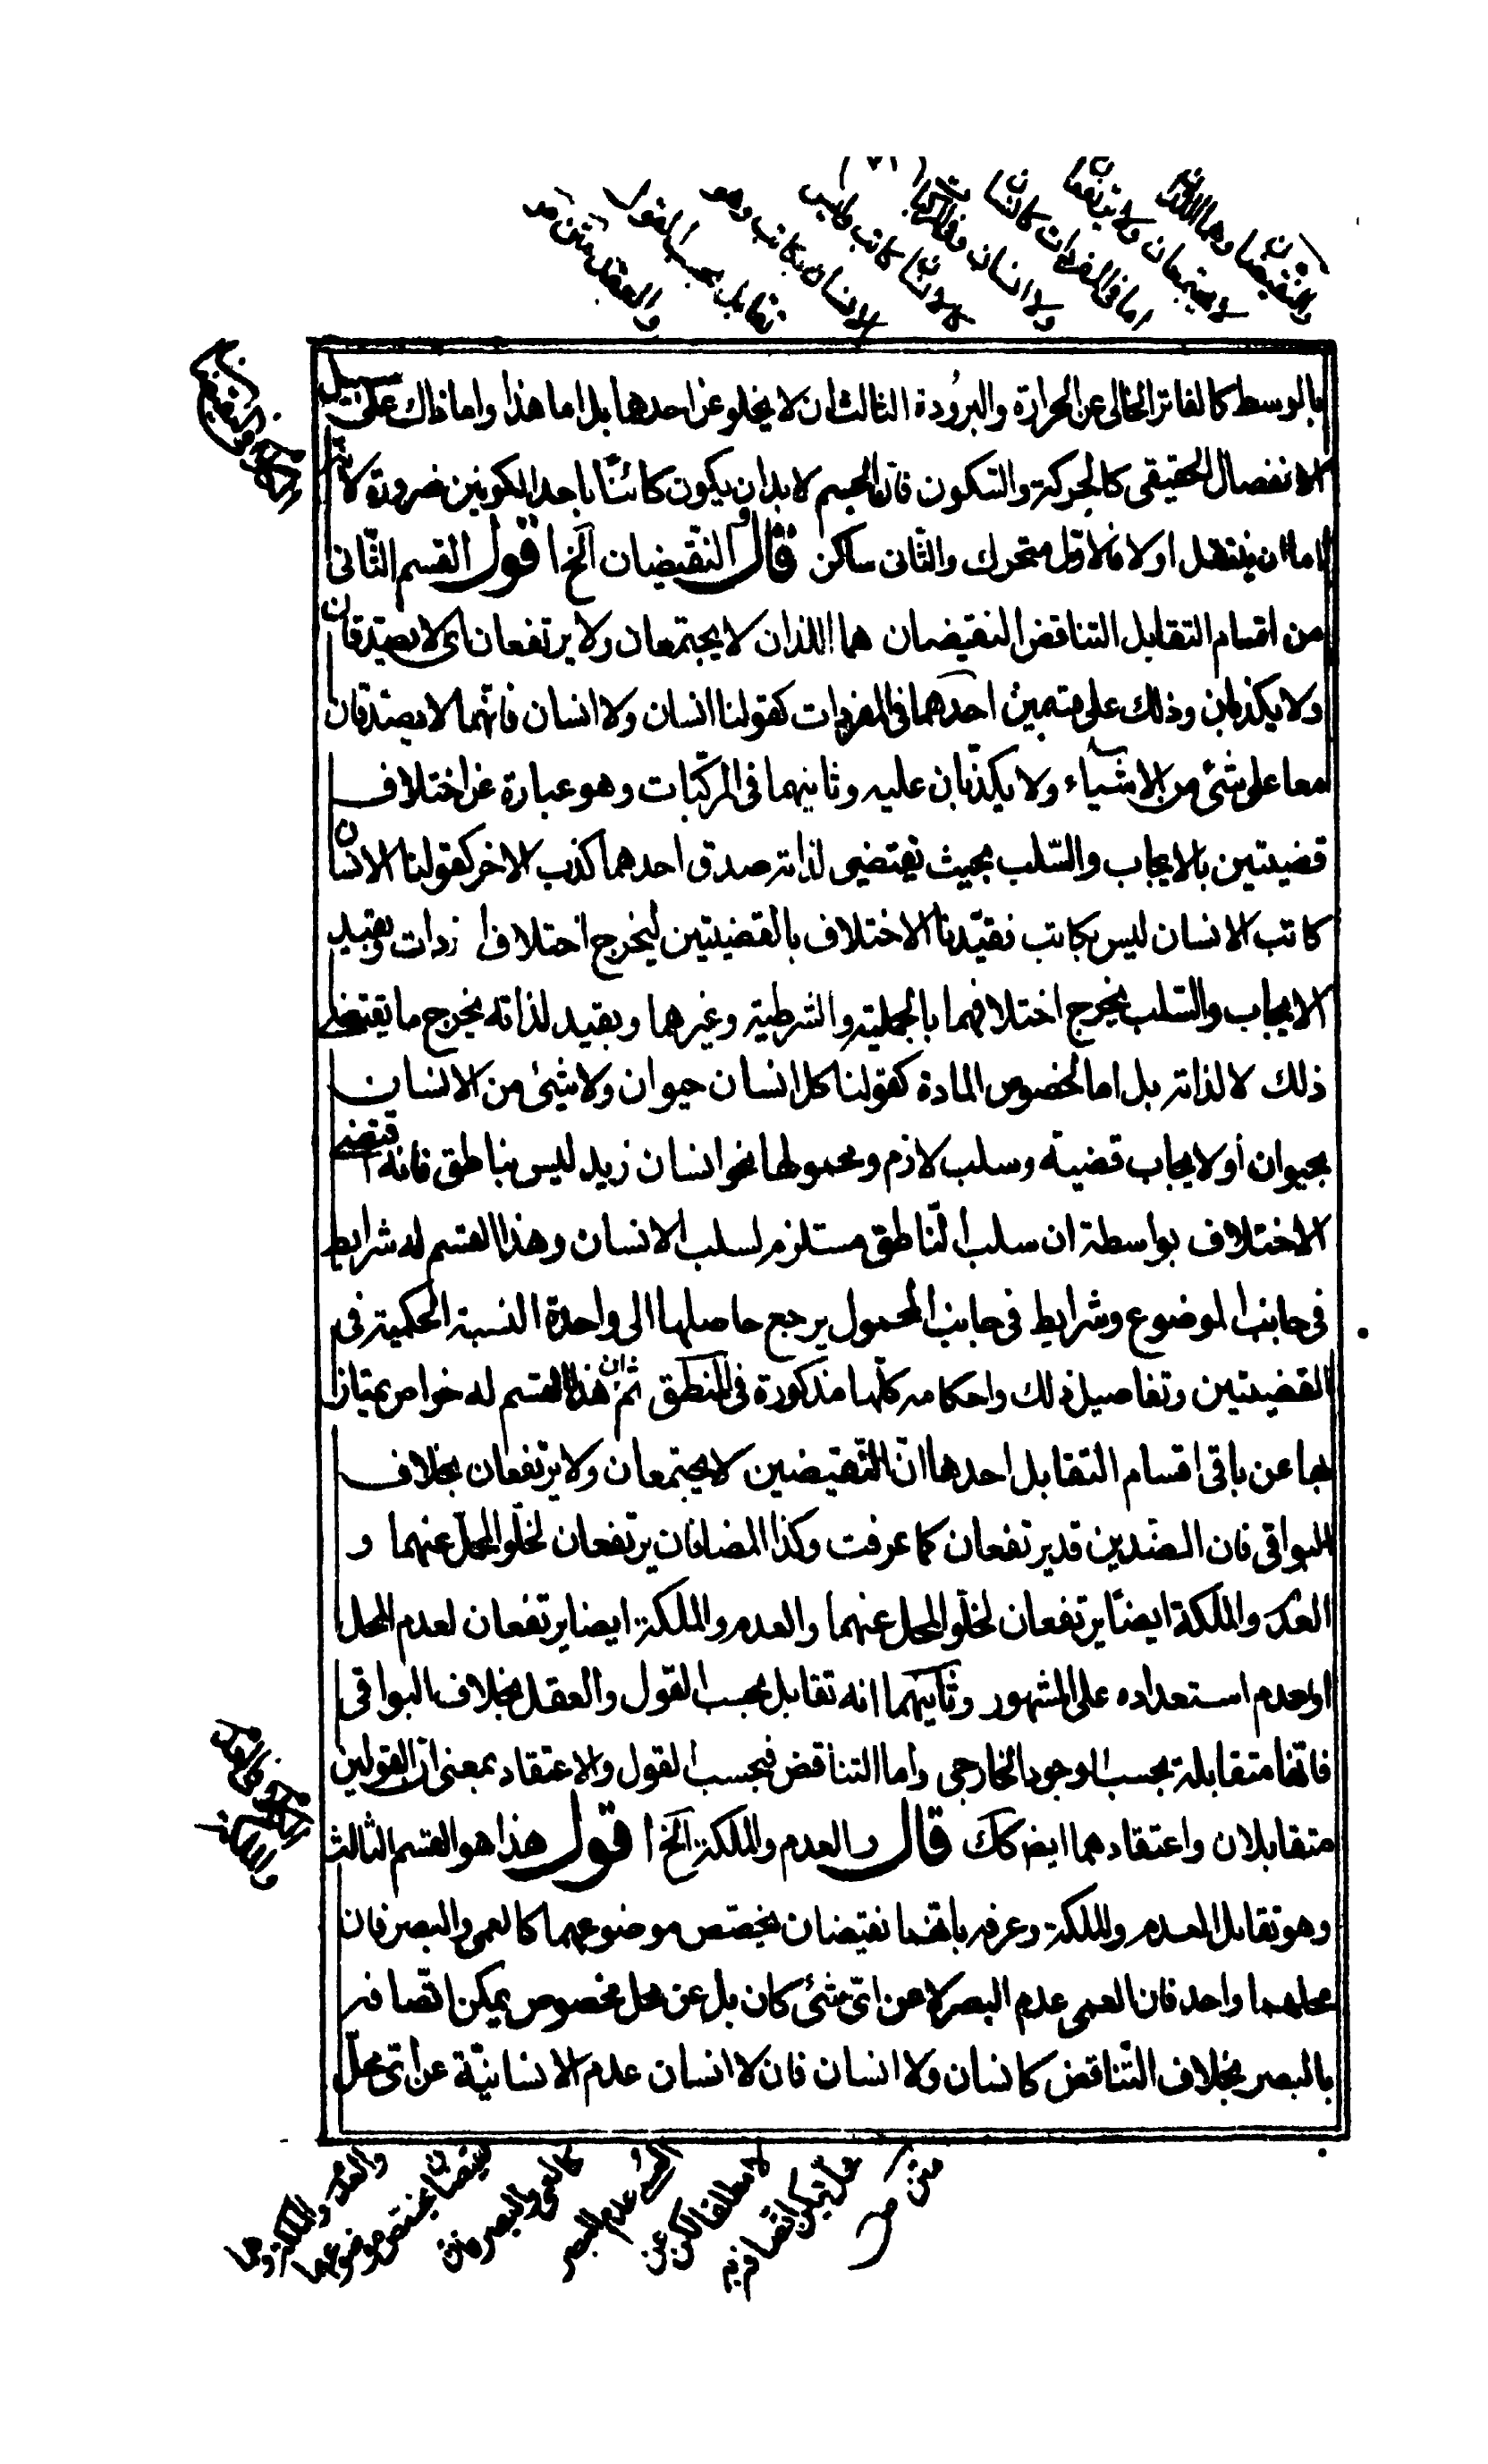 والنقيضان وهما اللذان
لا يجتمعان ولا يرتفعان
اما فى المفردات كانسان
ولا انسان وفى المركبات
كالانسان كاتب وليس
الانسان بكاتب وهو
تقابل بحسب القول
والعقد متن
بالوسط كالفاتر الخالى عن الحرارة والبرودة الثالث ان لا يخلو عن احدهما بل اما هذا واما ذاك على سبيل
الانفصال الحقيقى كالحركة والسكون فان الجسم لا بد ان يكون كائنا باحد الكونين ضرورة لانه
اما ان ينتقل اولا فالاول متحرك والثانى ساكن قال والنقيضان الخ اقول القسم الثانى
من اقسام التقابل التناقض النقيضان هما اللذان لا يجتمعان ولا يرتفعان اى لا يصدقان
ولا يكذبان وذلك على قسمين احدهما فى المفردات كقولنا انسان ولا انسان فانهما لا يصدقان
معا على شئ من الاشياء ولا يكذبان عليه وثانيهما فى المركبات وهو عبارة عن اختلاف
قضيتين بالايجاب والسلب بحيث يقتضى لذاته صدق احدهما كذب الاخر كقولنا الانسان
كاتب الانسان ليس بكاتب فقيدنا الاختلاف بالقضيتين ليخرج اختلاف ذوات وبقيد
الايجاب والسلب يخرج اختلافهما بالحملية والشرطية وغيرهما وبقيد لذاته يخرج ما يقتضى
ذلك لا لذاته بل اما لخصوص المادة كقولنا كل انسان حيوان ولا شئ من الانسان
بحيوان أو لايجاب قضية وسلب لازم ومحمولها نحو انسان زيد ليس بناطق فانه اقتضى
الاختلاف بواسطة ان سلب الناطق مستلزم لسلب الانسان وهذا القسم له شرايط
فى جانب الموضوع وشرايط فى جانب المحمول يرجع حاصلها الى واحدة النسبة الحكمية فى
القضيتين وتفاصيل ذلك واحكامه كلها مذكورة فى المنطق ثم ان هذا القسم له خواص يمتاز
بها عن باقى اقسام التقابل احدها ان النقيضين لا يجتمعان ولا يرتفعان بخلاف
البواقى فان الضدين قد يرتفعان كما عرفت وكذا المضافان يرتفعان لخلو المحل عنهما و
العدم والملكة ايضا يرتفعان لخلو المحل عنهما والعدم والملكة ايضا يرتفعان لعدم المحل
او لعدم استعداده على المشهور وثانيهما انه تقابل بحسب القول والعقد بخلاف البواقى
فانها متقابلة بحسب الوجود الخارجى واما التناقض فبحسب القول والاعتقاد بمعنى ان القولين
متقابلان واعتقادهما ايضا كك قال والعدم والملكة الخ اقول هذا هو القسم الثالث
وهو تقابل العدم والملكة وعرفه بانهما نقيضان يخصص موضوعهما كالعمى والبصر فان
محلهما واحد فان العمى عدم البصر لا عن اى شئ كان بل عن محل مخصوص يمكن اتصافه
بالبصر بخلاف التناقض كانسان ولا انسان فان لا انسان عدم الانسانية عن اى محل
والعدم والملكة وهما
نقيضان يختص موضوعهما
كالعمى والبصر متن
العمى عدم البصر
لا مطلقا لكن عن
محل يمكن اتصافه به
متن